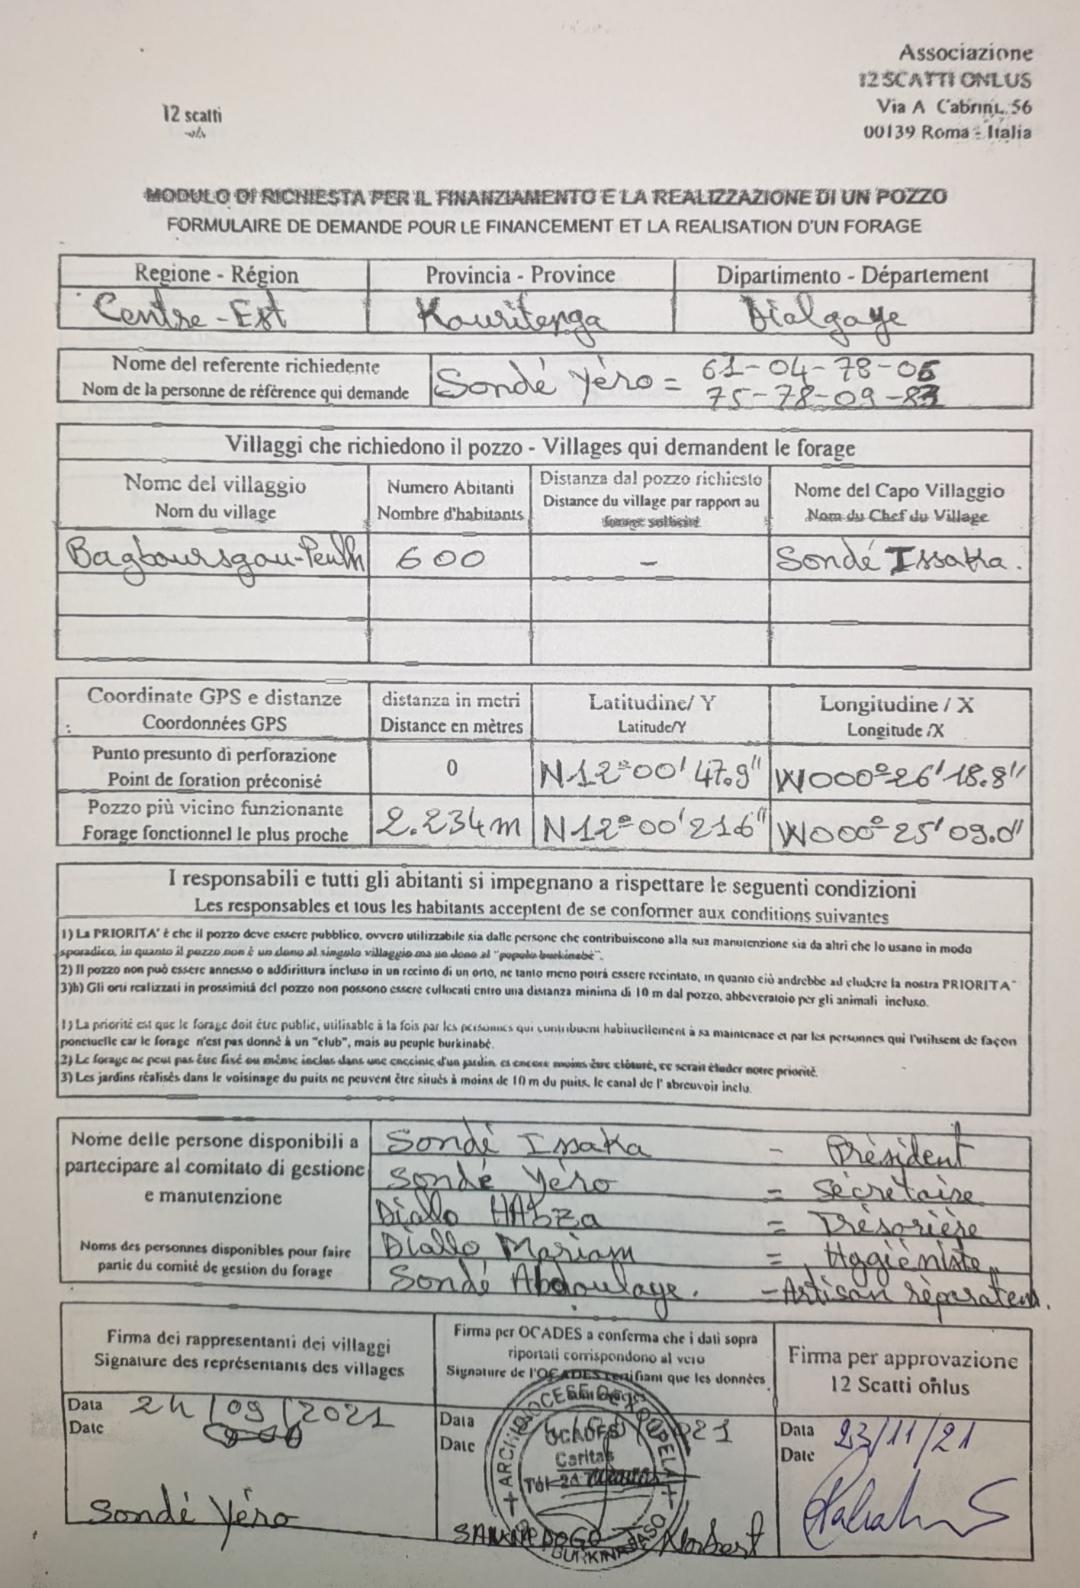 Associazione
12 SCATTI ONLUS
Via A Cabrini, 56
00139 Roma - Italia
12 scatti
MODULO DI RICHIESTA PER IL FINANZIAMENTO E LA REALIZZAZIONE DI UN POZZO
FORMULAIRE DE DEMANDE POUR LE FINANCEMENT ET LA REALISATION D'UN FORAGE
Regione - Région Provincia - Province Dipartimento - Département
Centre-Est Kouritenga Dialgaye
Nome del referente richiedente
Nom de la personne de référence qui demande
Sondé Yéro = 61-04-78-06
75-78-09-83
Villaggi che richiedono il pozzo - Villages qui demandent le forage
Nome del villaggio
Nom du village
Numero Abitanti
Nombre d'habitants
Distanza dal pozzo richiesto
Distance du village par rapport au
forage sollicité
Nome del Capo Villaggio
Nom du Chef du Village
Bagboursgou-Peulh 600 - Sondé Issaka.
Coordinate GPS e distanze
Coordonnées GPS
distanza in metri
Distance en mètres
Latitudine/ Y
Latitude/Y
Longitudine / X
Longitude /X
Punto presunto di perforazione
Point de foration préconisé
0 N12°00'47.9" W000°26'18.8"
Pozzo più vicino funzionante
Forage fonctionnel le plus proche
2.234m N12°00'21.6" W000°25'09.0"
I responsabili e tutti gli abitanti si impegnano a rispettare le seguenti condizioni
Les responsables et tous les habitants acceptent de se conformer aux conditions suivantes
1) La PRIORITA' è che il pozzo deve essere pubblico, ovvero utilizzabile sia dalle persone che contribuiscono alla sua manutenzione sia da altri che lo usano in modo
sporadico, in quanto il pozzo non è un dono al singolo villaggio ma un dono al "popolo burkinabé".
2) Il pozzo non può essere annesso o addirittura incluso in un recinto di un orto, ne tanto meno potrà essere recintato, in quanto ciò andrebbe ad eludere la nostra PRIORITA'
3)b) Gli orti realizzati in prossimità del pozzo non possono essere collocati entro una distanza minima di 10 m dal pozzo, abbeveratoio per gli animali incluso.
1) La priorité est que le forage doit être public, utilisable à la fois par les personnes qui contribuent habituellement à sa maintenace et par les personnes qui l'utilisent de façon
ponctuelle car le forage n'est pas donné à un "club", mais au peuple burkinabé.
2) Le forage ne peut pas être fixé ou même inclus dans une enceinte d'un jardin et encore moins être clôturé, ce serait éluder notre priorité.
3) Les jardins réalisés dans le voisinage du puits ne peuvent être situés à moins de 10 m du puits, le canal de l' abreuvoir inclu.
Nome delle persone disponibili a
partecipare al comitato di gestione
e manutenzione
Noms des personnes disponibles pour faire
partie du comité de gestion du forage
Sondé Issaka - Président
Sondé Yéro = Sécrétaire
Diallo HABZA = Trésorière
Diallo Mariam = Hygiéniste
Sondé Abdoulaye. - Artisan réparateur.
Firma dei rappresentanti dei villaggi
Signature des représentants des villages
Firma per OCADES a conferma che i dati sopra
riportati corrispondono al vero
Signature de l'OCADES certifiant que les données
Firma per approvazione
12 Scatti onlus
Data
Date
24/09/2021
Sondé Yéro
Data
Date
ARCHIDIOCESE DE KOUPELA
OCADES
Caritas
BURKINA FASO
SAWADOGO Norbert
Data
Date
23/11/21